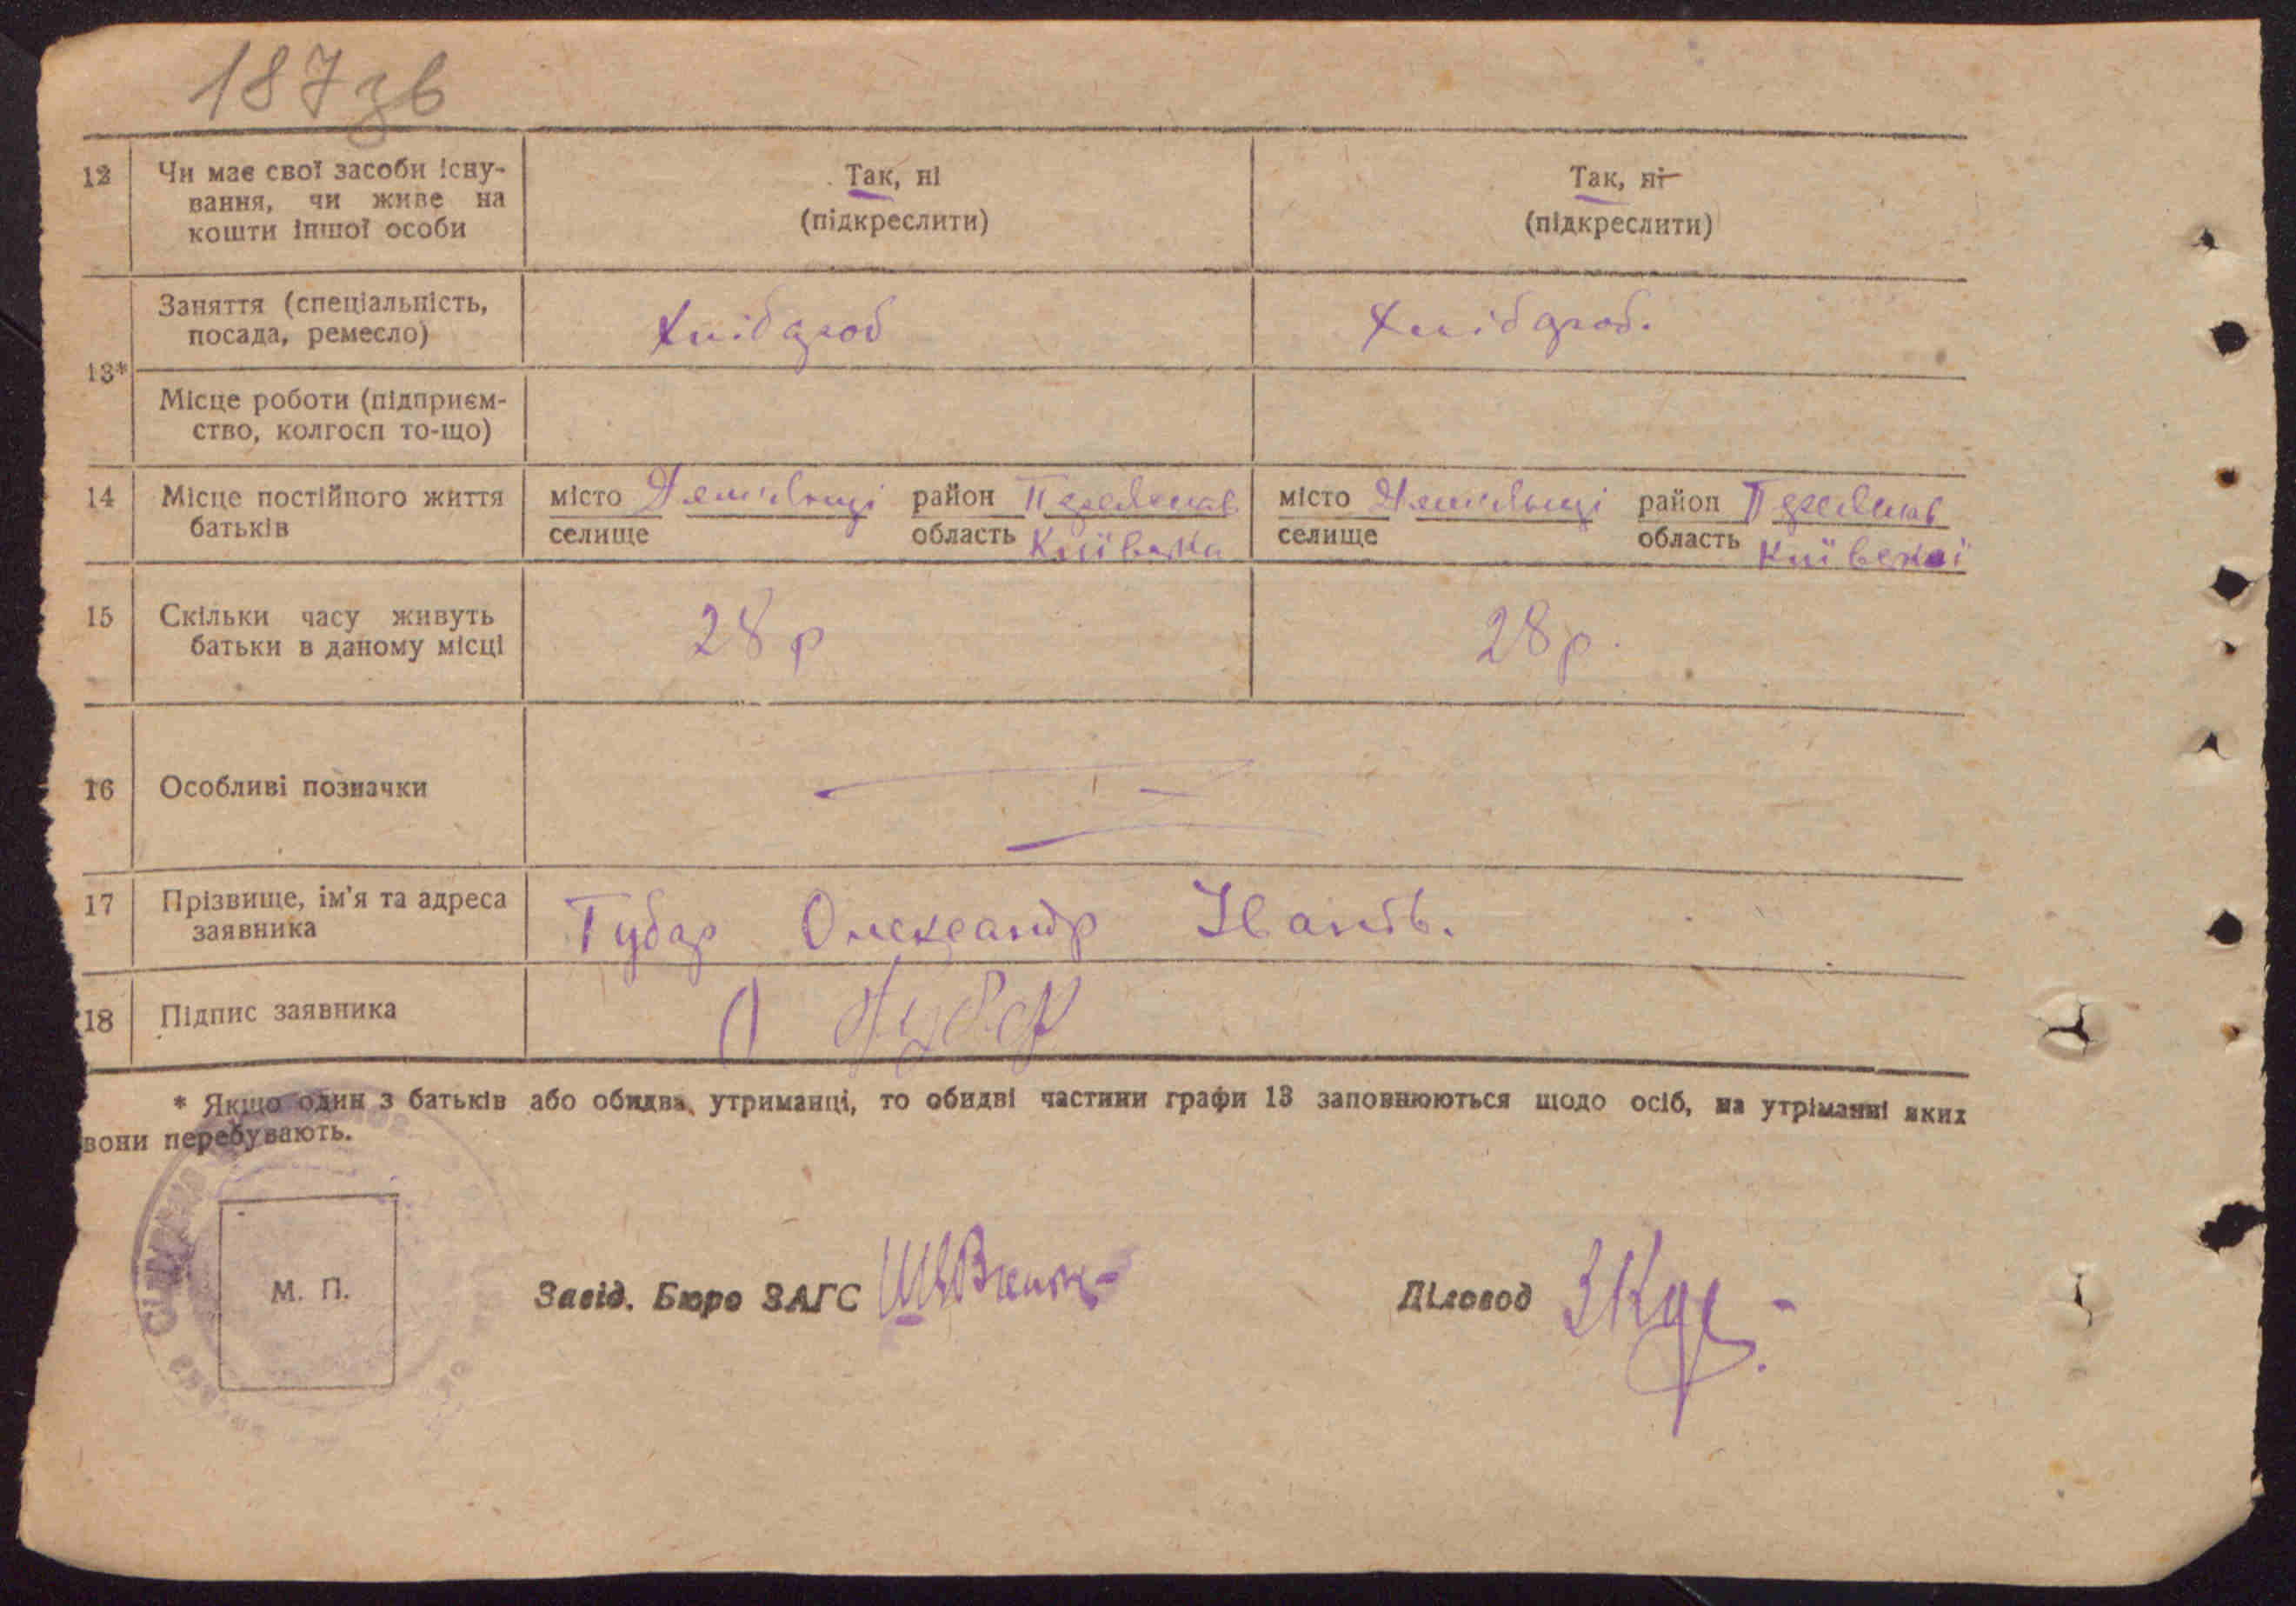 187 зв
12 Чи має свої засоби існу- Так, ні Так, ні
вання, чи живе на (підкреслити) (підкреслити)
кошти іншої особи
Заняття (спеціальність, Хлібороб Хлібороб.
посада, ремесло)
13*
Місце роботи (підприєм-
ство, колгосп то-що)
14 Місце постійного життя місто район Переяслав місто район Переяслав
батьків селище область Київська селище область Київської
15 Скільки часу живуть 28 р 28 р.
батьки в даному місці
16 Особливі позначки
17 Прізвище, ім'я та адреса Губар Олександр Іванов.
заявника
18 Підпис заявника Губар
* Якщо один з батьків або обидва, утриманці, то обидві частини графи 13 заповнюються щодо осіб, на утріманні яких
вони перебувають.
М. П.
Завід. Бюро ЗАГС Діловод